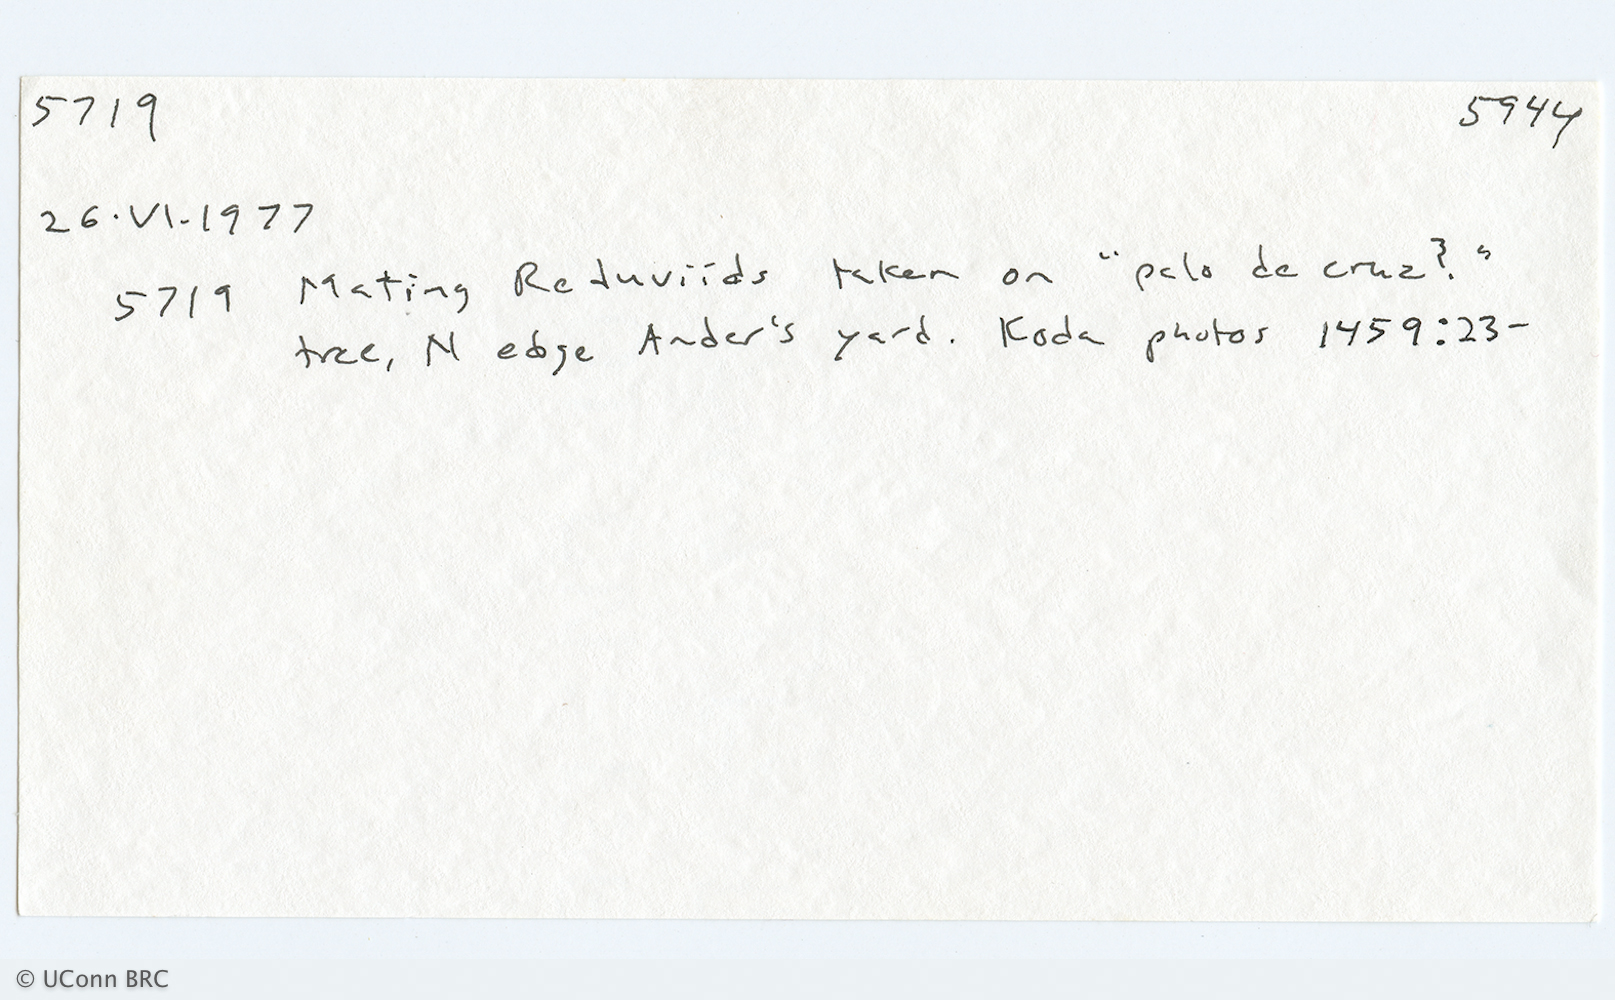 5719 5944
26·VI-1977
5719 Mating Reduviids taken on "palo de cruz?."
tree, N edge Ander's yard. Koda photos 1459:23-
© UConn BRC